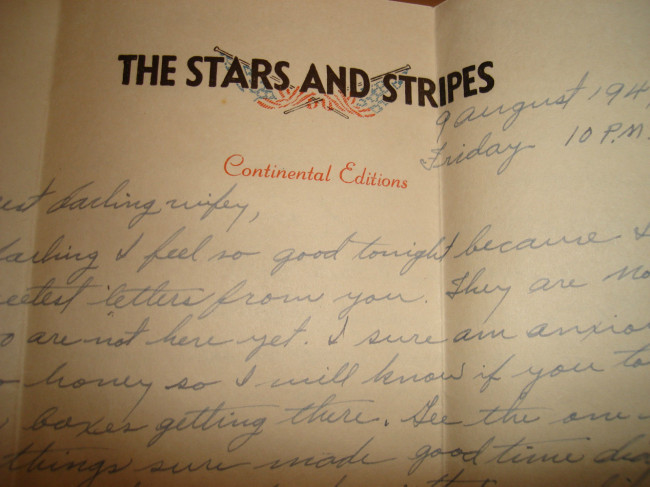 THE STARS AND STRIPES
9 August 194
Friday 10 P.M.
Continental Editions
est darling wifey,
arling I feel so good tonight because I
eetest letters from you. They are No
o are not here yet. I sure am anxio
o honey so I will know if you to
boxes getting there. See the one-
things sure made good time dea